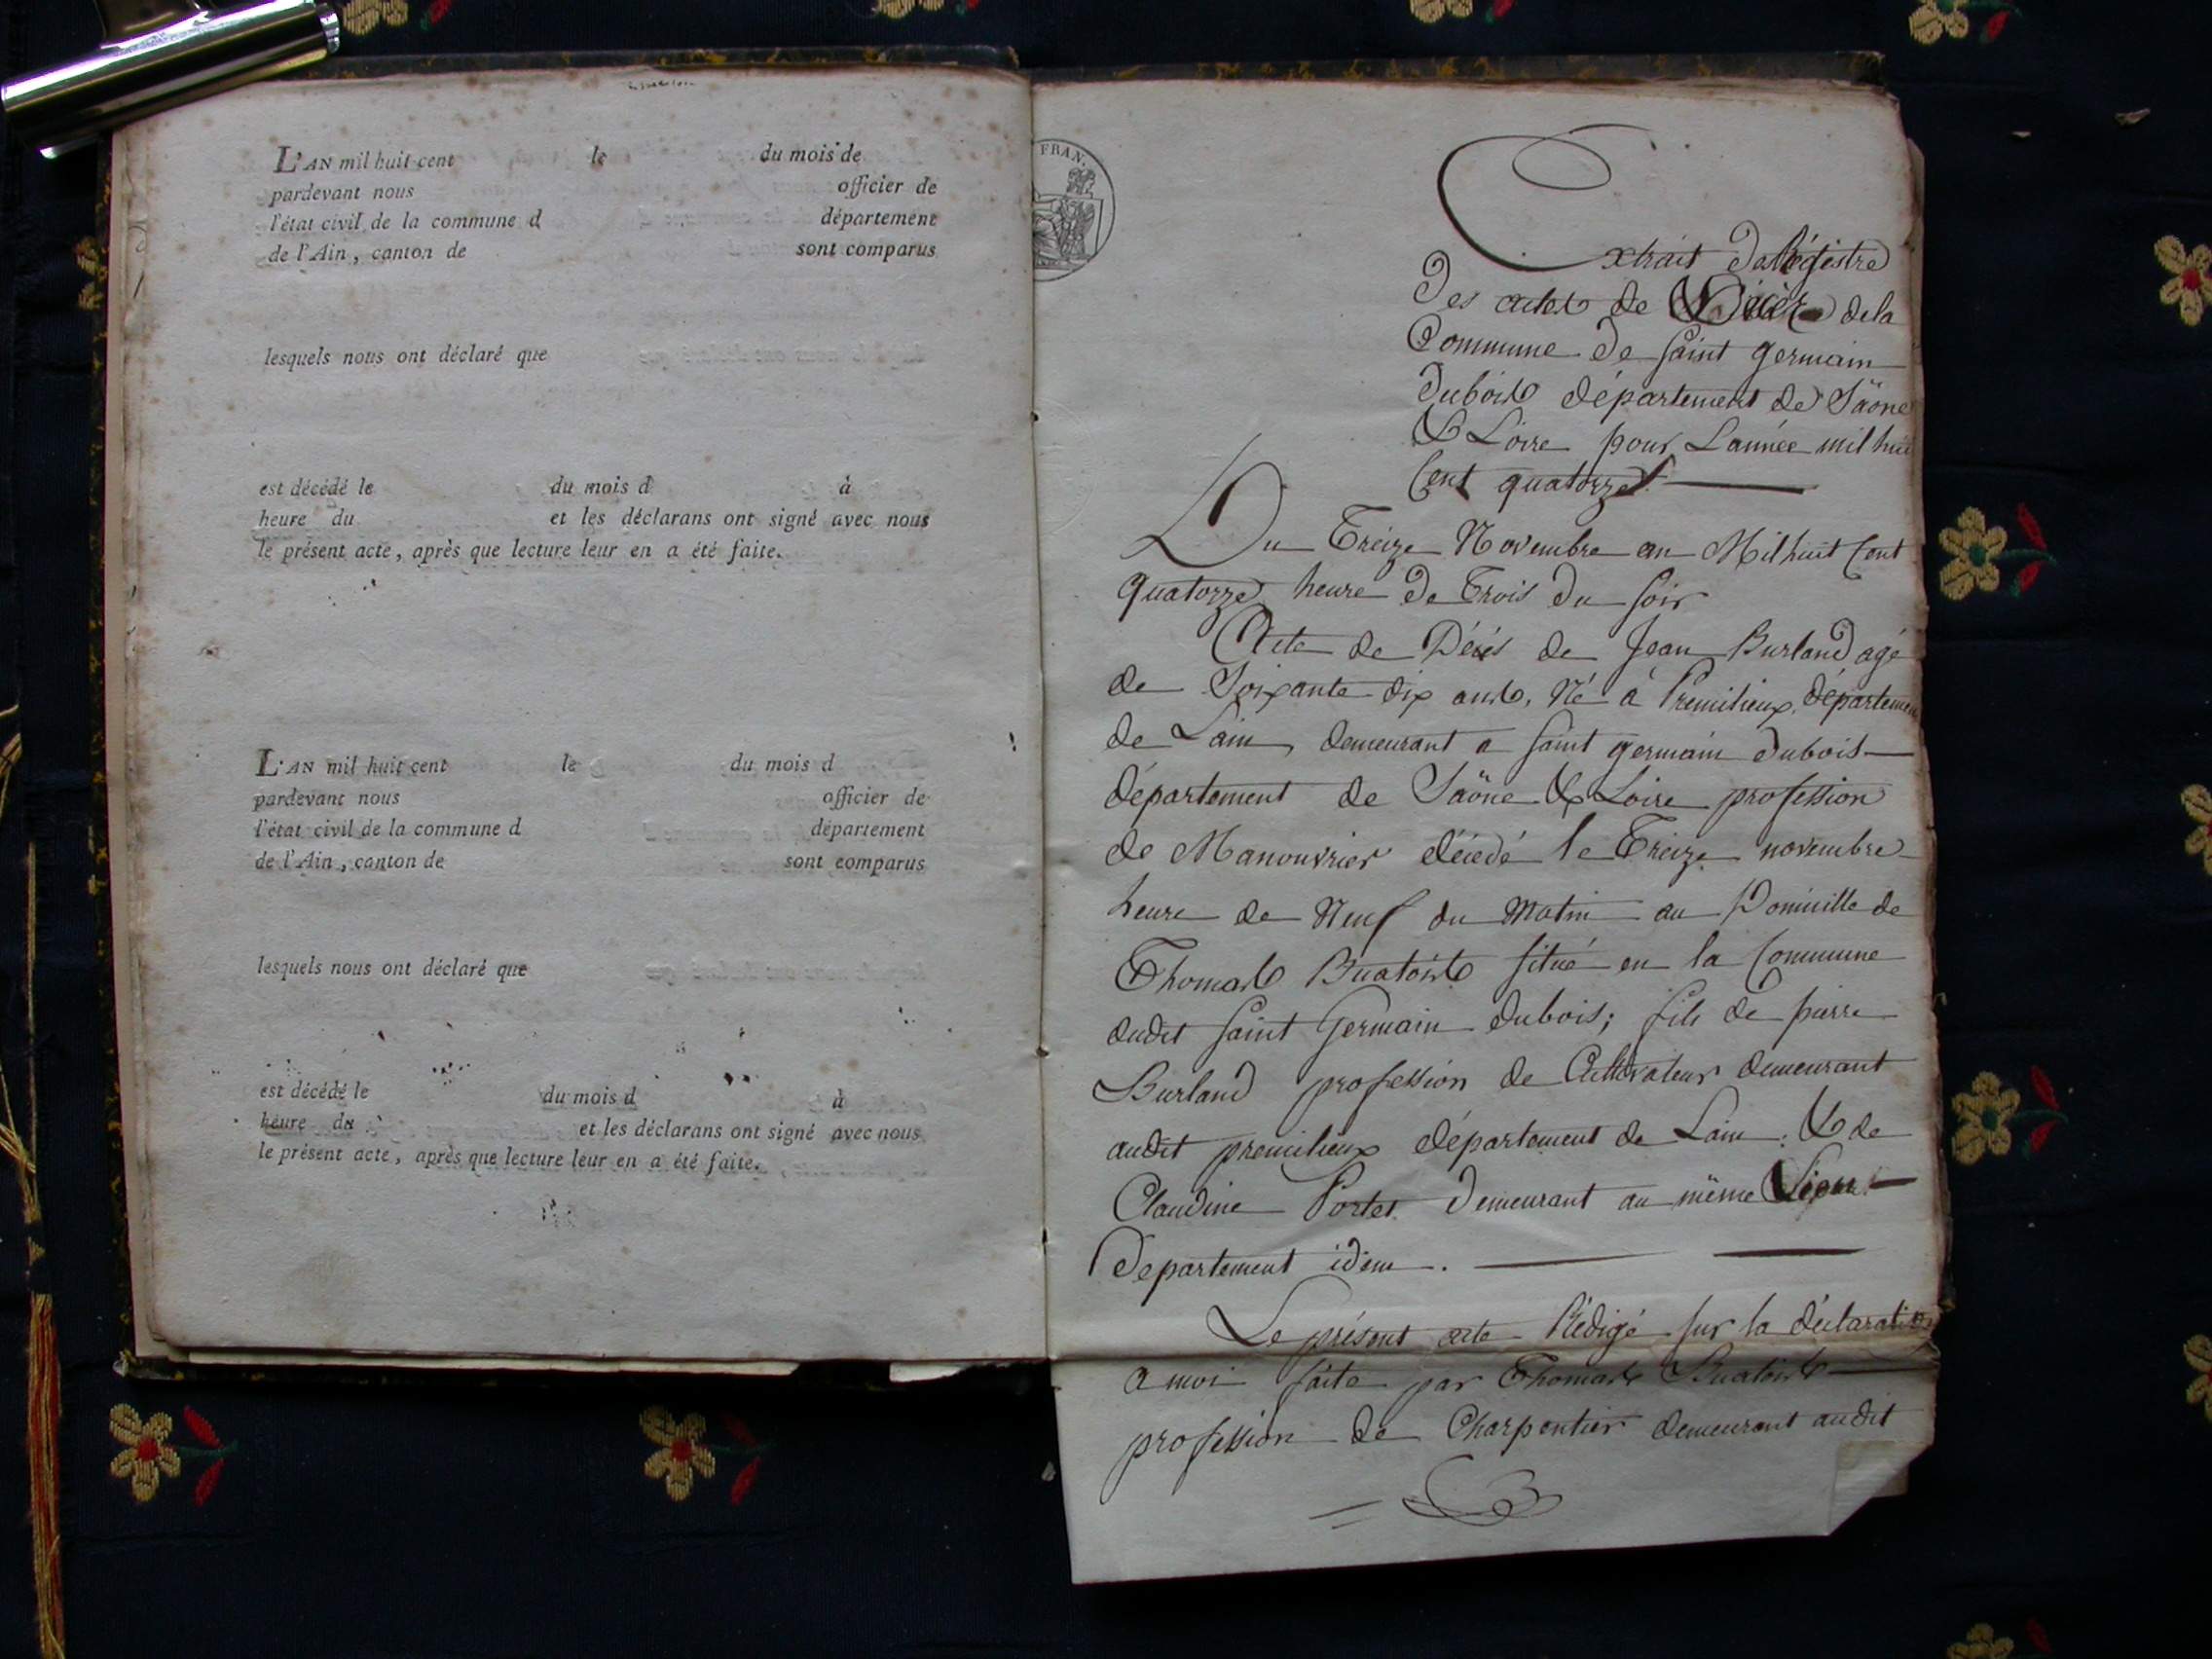 L'AN mil huit cent le du mois de
pardevant nous officier de
l'état civil de la commune d département
de l'Ain, canton de sont comparus
lesquels nous ont déclaré que
est décédé le du mois d à
heure du et les déclarans ont signé avec nous
le présent acte, après que lecture leur en a été faite.
L'AN mil huit cent le du mois d
pardevant nous officier de
l'état civil de la commune d département
de l'Ain, canton de sont comparus
lesquels nous ont déclaré que
est décédé le du mois d à
heure du et les déclarans ont signé avec nous
le présent acte, après que lecture leur en a été faite.
FRAN.
Extrait du Régistre
Des actes de Décès de la
Commune de Saint Germain
Dubois département de Saöne
& Loire pour L'année mil huit
Cent quatorze.
Du Treize Novembre an Mil huit Cent
quatorze heure de Trois du soir
Acte de Décés de Jean Burland agé
de Soixante dix ans, Né à Premilieux, département
de Lain, demeurant a Saint germain dubois
département de Saöne & Loire profession
de Manouvrier décedé le Treize novembre
heure de Neuf du Matin au Domicille de
Thomas Buatois situé en la Commune
dudit Saint Germain dubois; fils de pierre
Burland profession de Cultivateur demeurant
audit premilieux département de Lain. & de
Claudine Portet Demeurant au même Lieu.
Departement idem.
Le présent acte Rédigé sur la déclaration
a moi faite par Thomas Buatois
profession de Charpentier demeurant audit